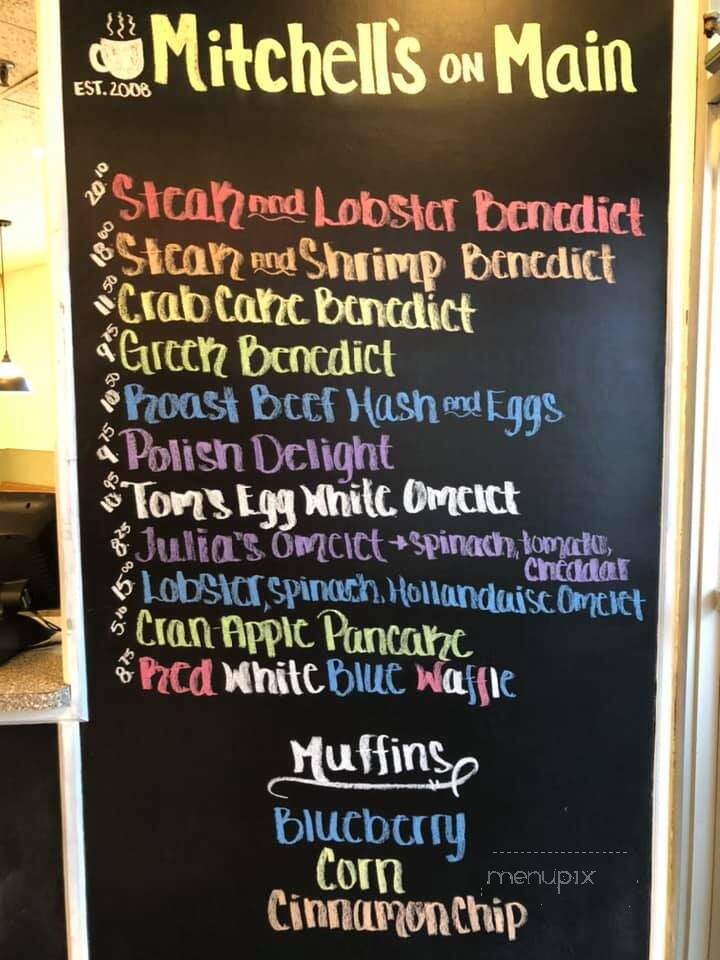 Mitchell's ON Main
EST. 2008
20.10 Steak and Lobster Benedict
18.60 Steak and Shrimp Benedict
11.50 Crab Cake Benedict
9.75 Greek Benedict
10.50 Roast Beef Hash and Eggs
9.75 Polish Delight
10.95 Tom's Egg White Omelet
8.25 Julia's Omelet → spinach, tomato,
cheddar
15.00 Lobster, spinach, Hollandaise Omelet
5.10 Cran-Apple Pancake
8.75 Red White Blue Waffle
Muffins
Blueberry
Corn
Cinnamon Chip
menupix